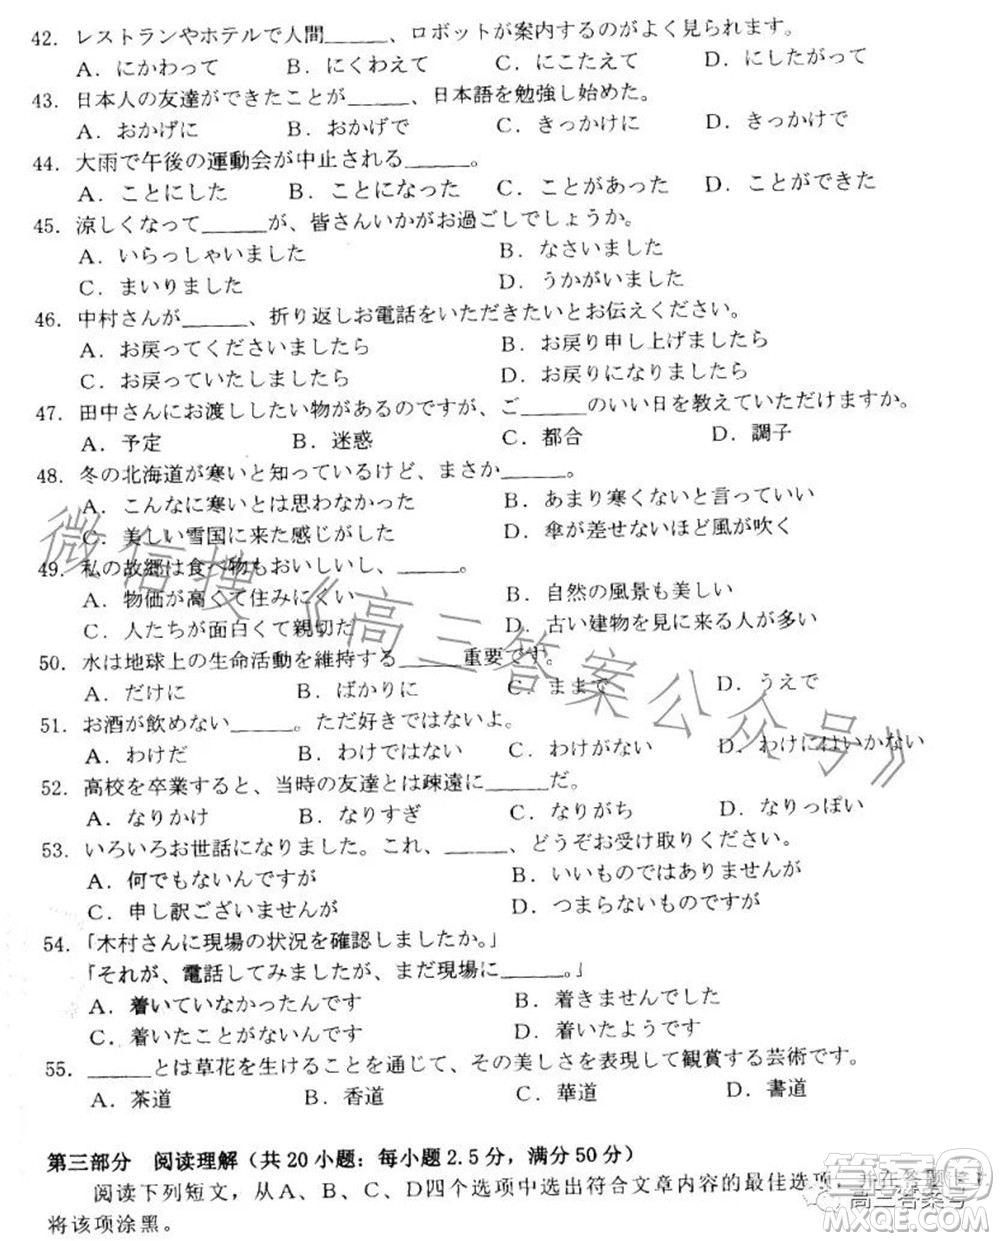 42. レストランやホテルで人間______、ロボットが案内するのがよく見られます。
A. にかわって B. にくわえて C. にこたえて D. にしたがって
43. 日本人の友達ができたことが_____、日本語を勉強し始めた。
A. おかげに B. おかげで C. きっかけに D. きっかけで
44. 大雨で午後の運動会が中止される______。
A. ことにした B. ことになった C. ことがあった D. ことができた
45. 涼しくなって______が、皆さんいかがお過ごしでしょうか。
A. いらっしゃいました B. なさいました
C. まいりました D. うかがいました
46. 中村さんが______、折り返しお電話をいただきたいとお伝えください。
A. お戻ってくださいましたら B. お戻り申し上げましたら
C. お戻っていたしましたら D. お戻りになりましたら
47. 田中さんにお渡ししたい物があるのですが、ご______のいい日を教えていただけますか。
A. 予定 B. 迷惑 C. 都合 D. 調子
48. 冬の北海道が寒いと知っているけど、まさか______。
A. こんなに寒いとは思わなかった B. あまり寒くないと言っていい
C. 美しい雪国に来た感じがした D. 傘が差せないほど風が吹く
49. 私の故郷は食べ物もおいしいし、______。
A. 物価が高くて住みにくい B. 自然の風景も美しい
C. 人たちが面白くて親切だ D. 古い建物を見に来る人が多い
50. 水は地球上の生命活動を維持する______重要です。
A. だけに B. ばかりに C. ままで D. うえで
51. お酒が飲めない______。ただ好きではないよ。
A. わけだ B. わけではない C. わけがない D. わけにはいかない
52. 高校を卒業すると、当時の友達とは疎遠に______だ。
A. なりかけ B. なりすぎ C. なりがち D. なりっぽい
53. いろいろお世話になりました。これ、______、どうぞお受け取りください。
A. 何でもないんですが B. いいものではありませんが
C. 申し訳ございませんが D. つまらないものですが
54. 「木村さんに現場の状況を確認しましたか。」
「それが、電話してみましたが、まだ現場に______。」
A. 着いていなかったんです B. 着きませんでした
C. 着いたことがないんです D. 着いたようです
55. ______とは草花を生けることを通じて、その美しさを表現して観賞する芸術です。
A. 茶道 B. 香道 C. 華道 D. 書道
第三部分 阅读理解（共20小题：每小题2.5分，满分50分）
阅读下列短文，从A、B、C、D四个选项中选出符合文章内容的最佳选项，并在答题卡上
将该项涂黑。
微信搜《高三答案公众号》
高三答案号
答案圈
MXQE.COM